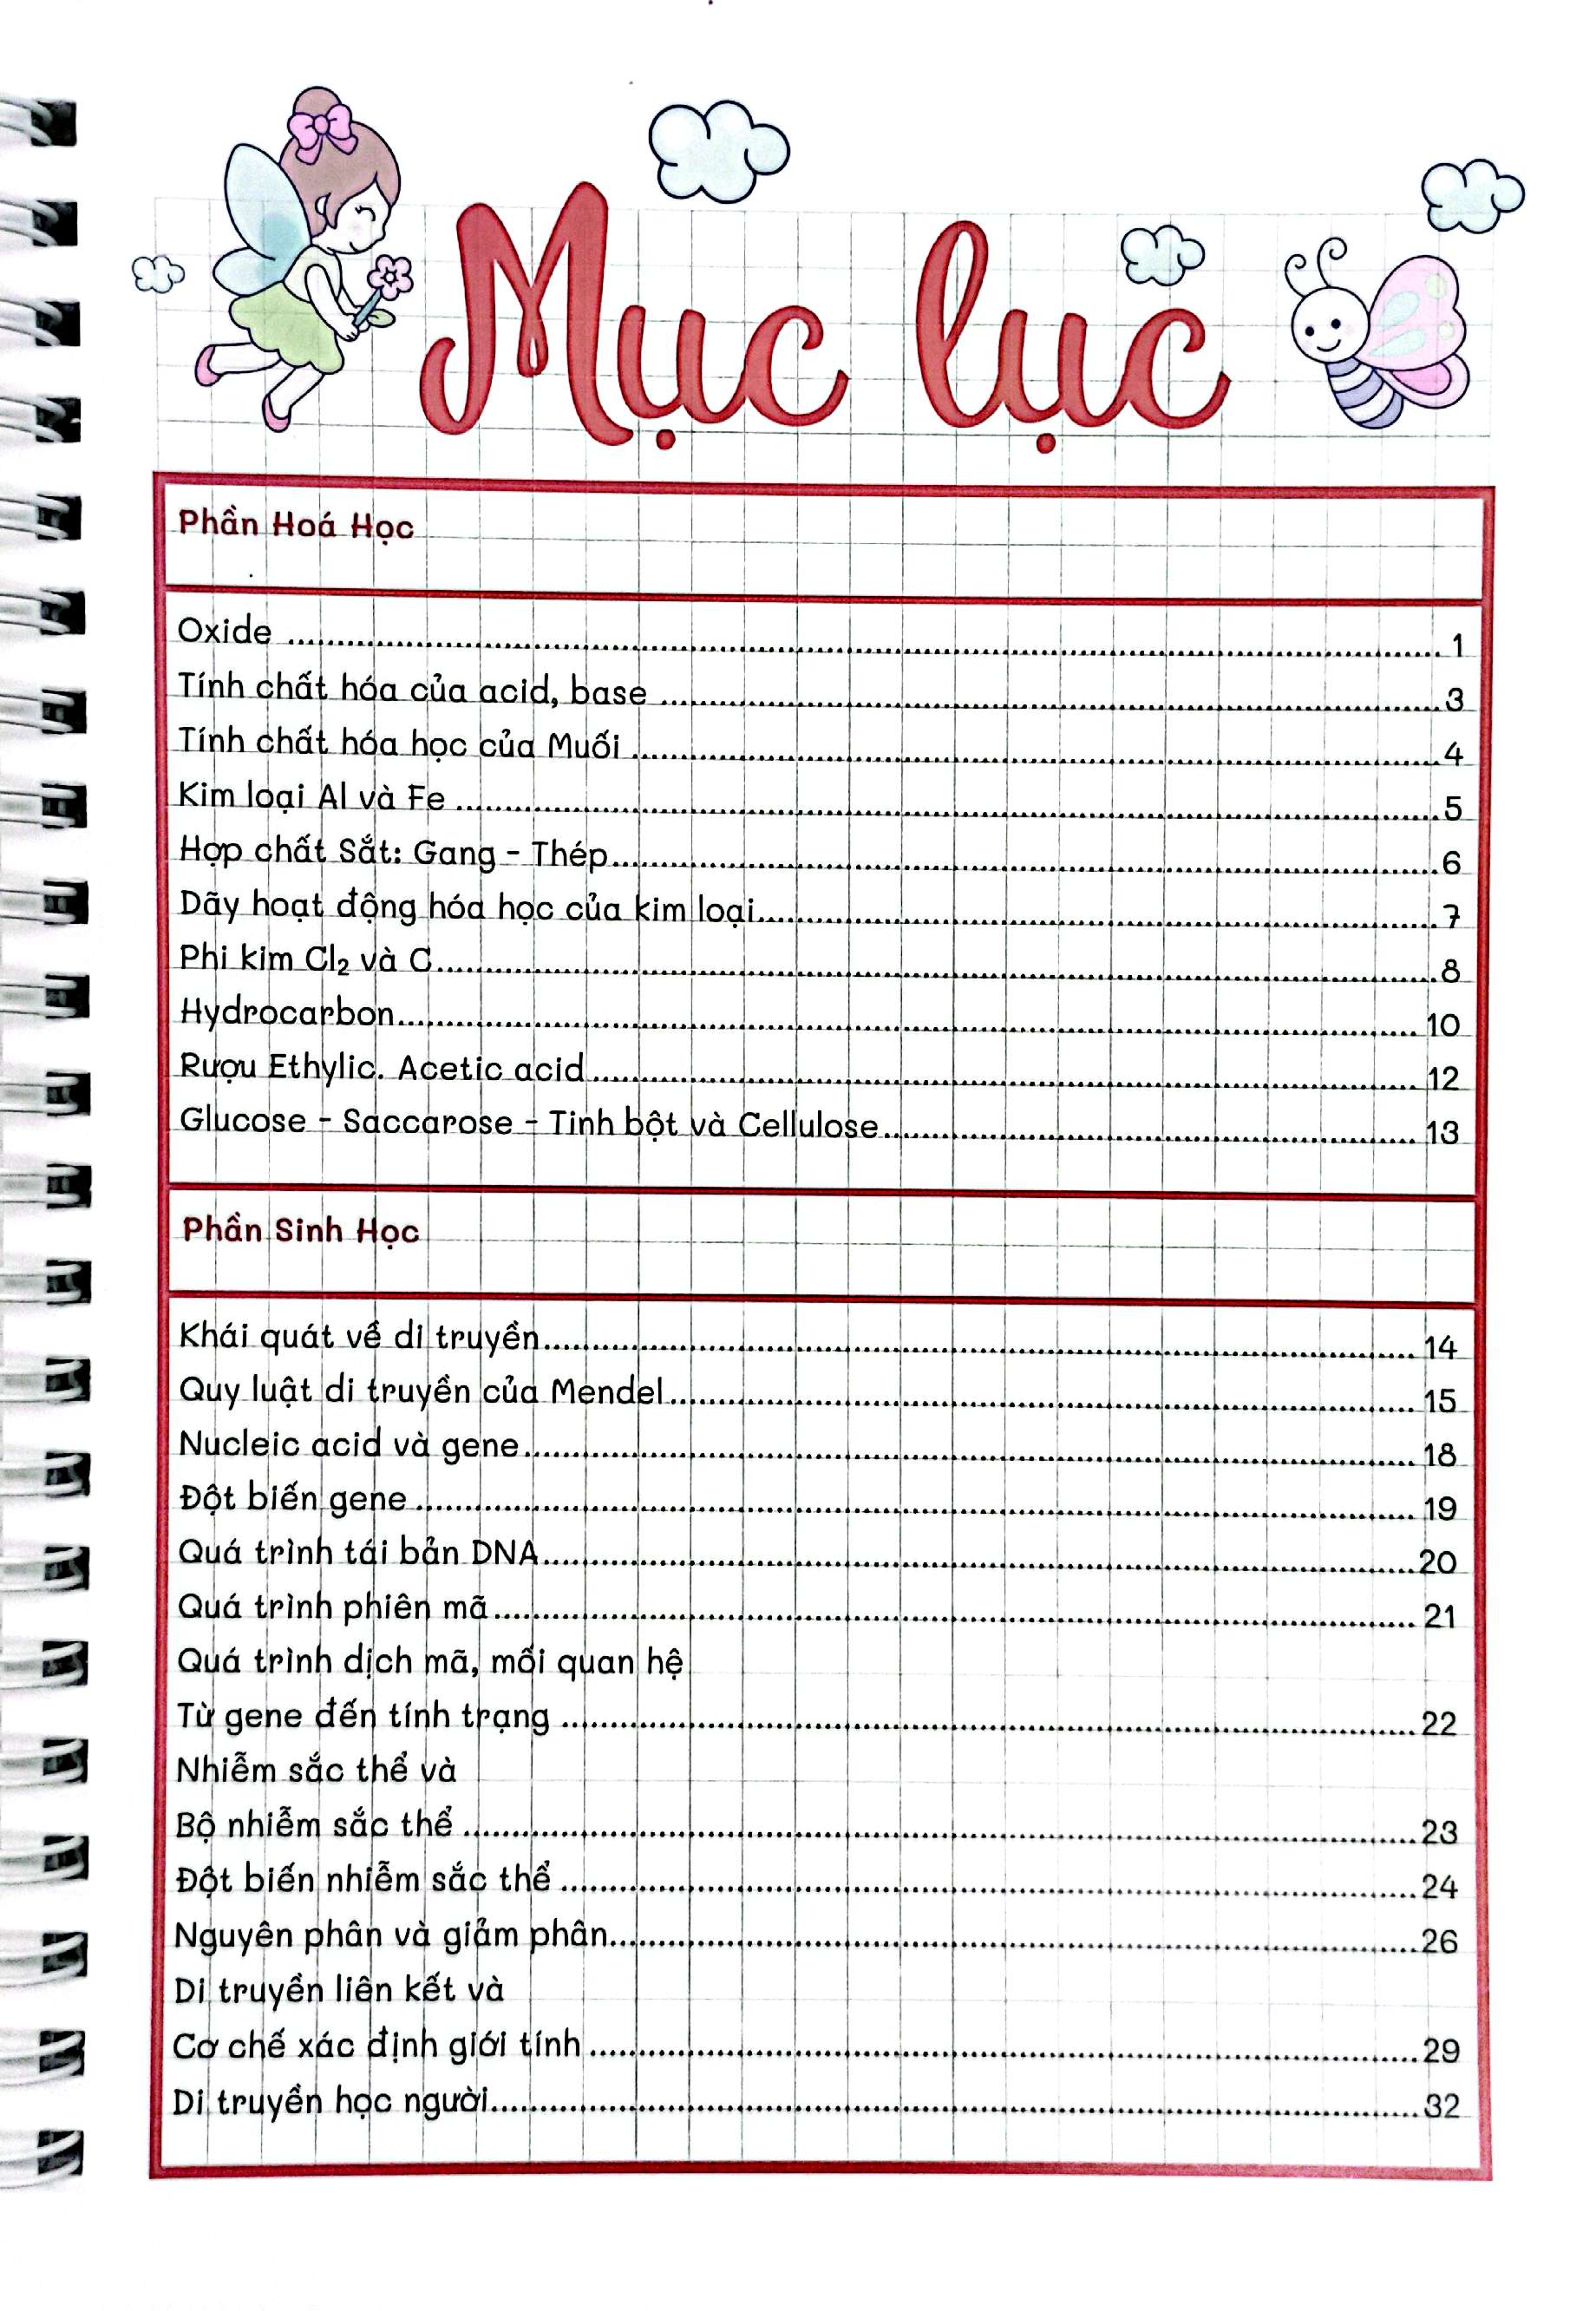 Mục lục
Phần Hoá Học
Oxide ........................ 1
Tính chất hóa của acid, base ........................ 3
Tính chất hóa học của Muối ........................ 4
Kim loại Al và Fe ........................ 5
Hợp chất Sắt: Gang - Thép ........................ 6
Dãy hoạt động hóa học của kim loại ........................ 7
Phi kim Cl₂ và C ........................ 8
Hydrocarbon ........................ 10
Rượu Ethylic. Acetic acid ........................ 12
Glucose - Saccarose - Tinh bột và Cellulose ........................ 13
Phần Sinh Học
Khái quát về di truyền ........................ 14
Quy luật di truyền của Mendel ........................ 15
Nucleic acid và gene ........................ 18
Đột biến gene ........................ 19
Quá trình tái bản DNA ........................ 20
Quá trình phiên mã ........................ 21
Quá trình dịch mã, mối quan hệ
Từ gene đến tính trạng ........................ 22
Nhiễm sắc thể và
Bộ nhiễm sắc thể ........................ 23
Đột biến nhiễm sắc thể ........................ 24
Nguyên phân và giảm phân ........................ 26
Di truyền liên kết và
Cơ chế xác định giới tính ........................ 29
Di truyền học người ........................ 32